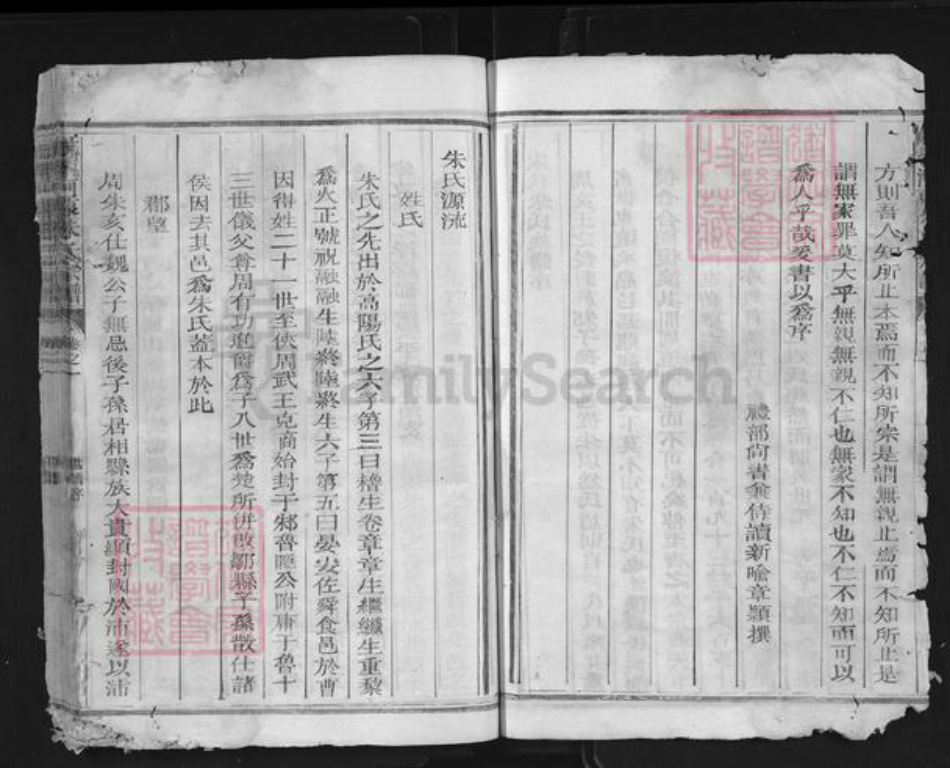 方則吾人知所止本焉而不知所宗是謂無親止焉而不知所止是
謂無家罪莫大乎無親無親不仁也無家不知也不仁不知而可以
爲人乎哉爰書以爲序
禮部尚書兼侍讀新喻章頴撰
朱氏源流
姓氏
朱氏之先出於高陽氏之六子第三曰穭生卷章章生繼繼生重黎
爲火正號祝融融生陸終陸終生六子第五曰晏安佐舜食邑於曹
因得姓二十一世至俠周武王克商始封于邾魯隱公附庸于魯十
三世儀父會周有功進爵爲子八世爲楚所併改鄒縣子孫散仕諸
侯因去其邑爲朱氏蓋本於此
郡望
周朱亥仕魏公子無忌後子孫居相縣族大貴顯封國於沛遂以沛
FamilySearch